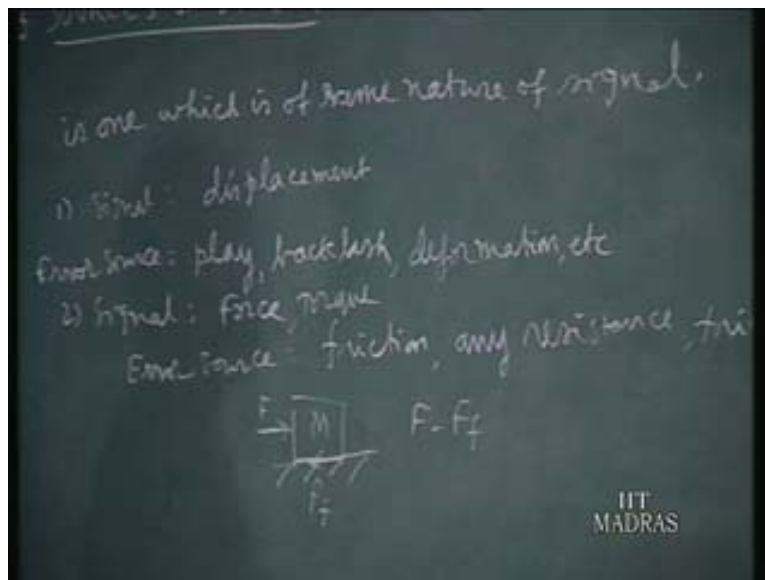 is one which is of same nature of signal.
1) Signal: displacement
Error Source: play, backlash, deformation, etc
2) Signal: Force, torque
Error Source: friction, any resistance, fri
F M F - Ff
Ff
IIT
MADRAS